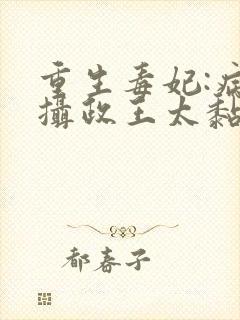 重生毒妃:病
攝政王太黏
都春子